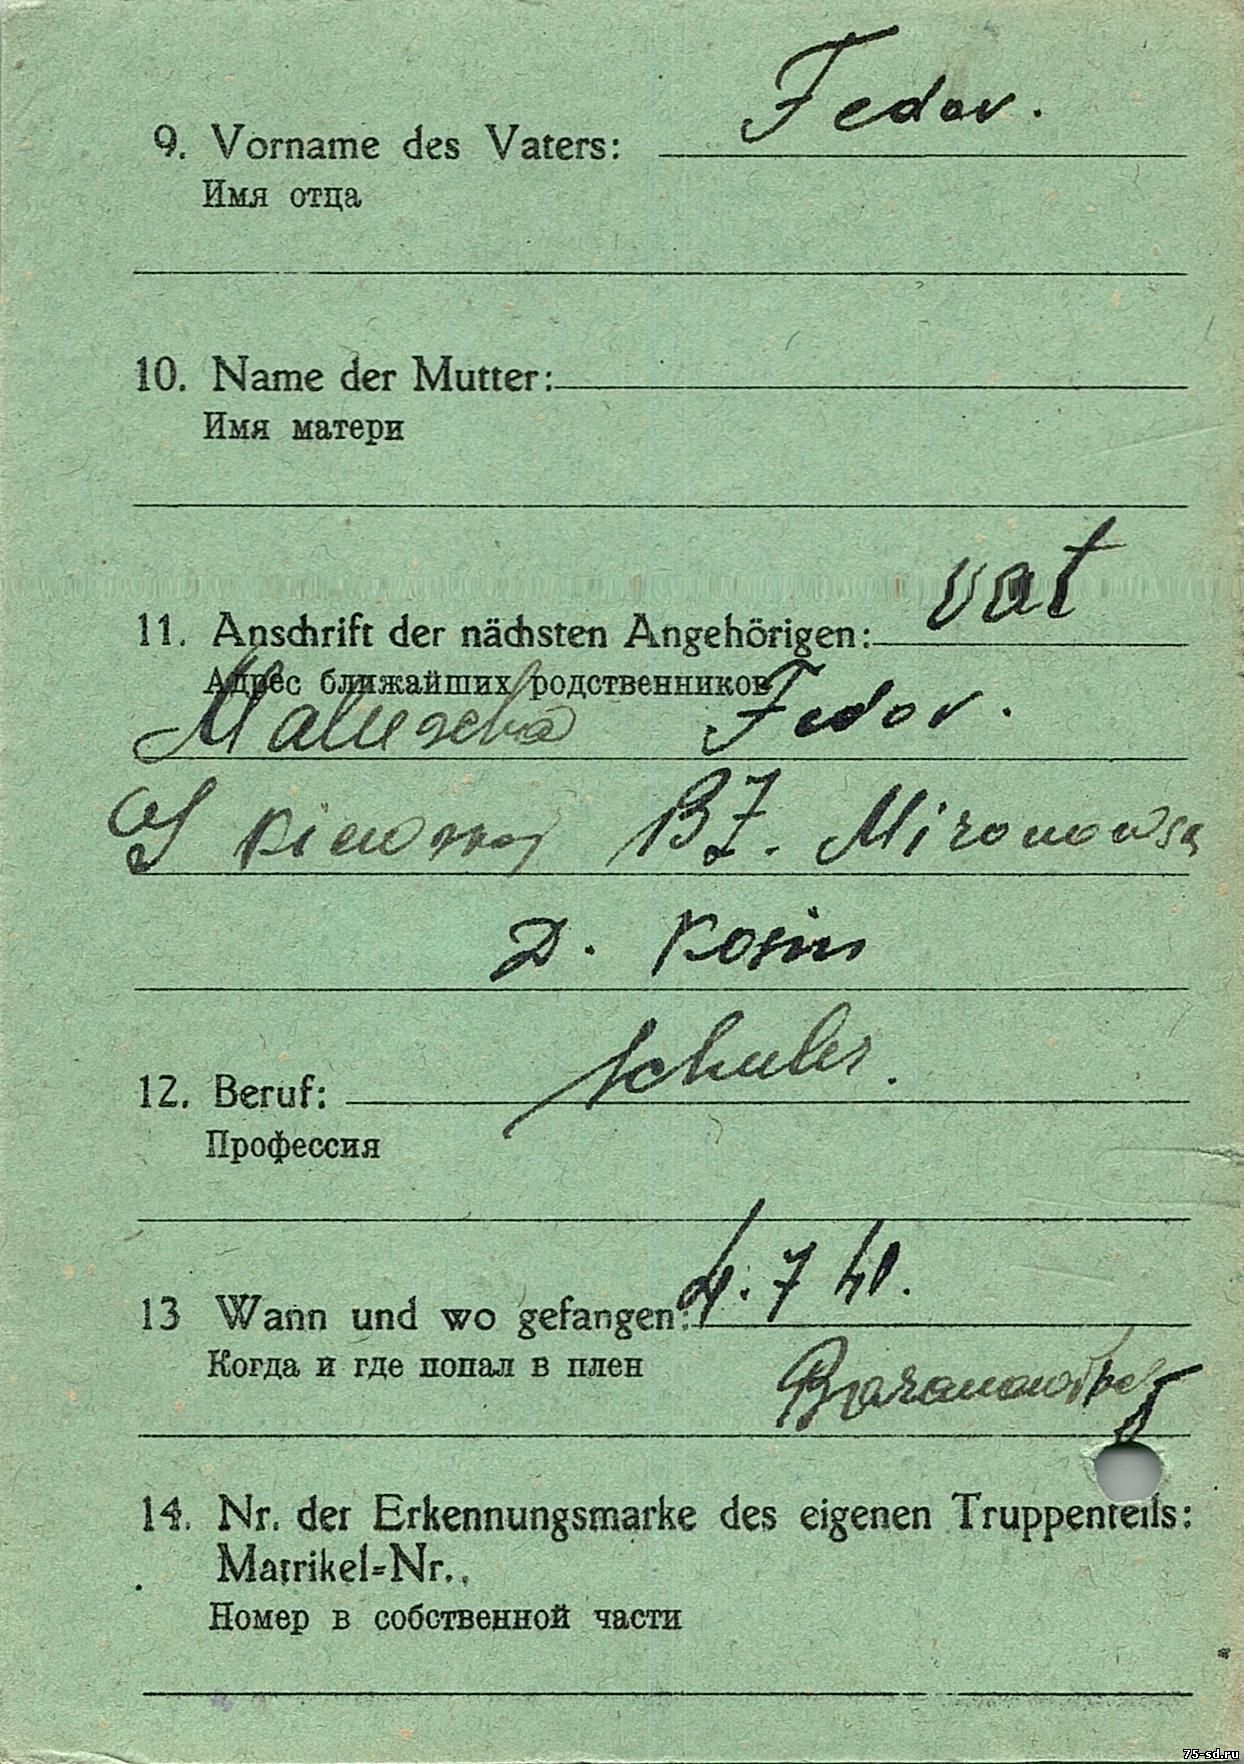 9. Vorname des Vaters: Fedor.
Имя отца
10. Name der Mutter:
Имя матери
11. Anschrift der nächsten Angehörigen: Vat
Адрес ближайших родственников
Fedor.
Mironowsa
D. Kosin
12. Beruf: Schuler.
Профессия
13 Wann und wo gefangen: 4. 7 41.
Когда и где попал в плен
14. Nr. der Erkennungsmarke des eigenen Truppenteils:
Matrikel=Nr..
Номер в собственной части
75-sd.ru